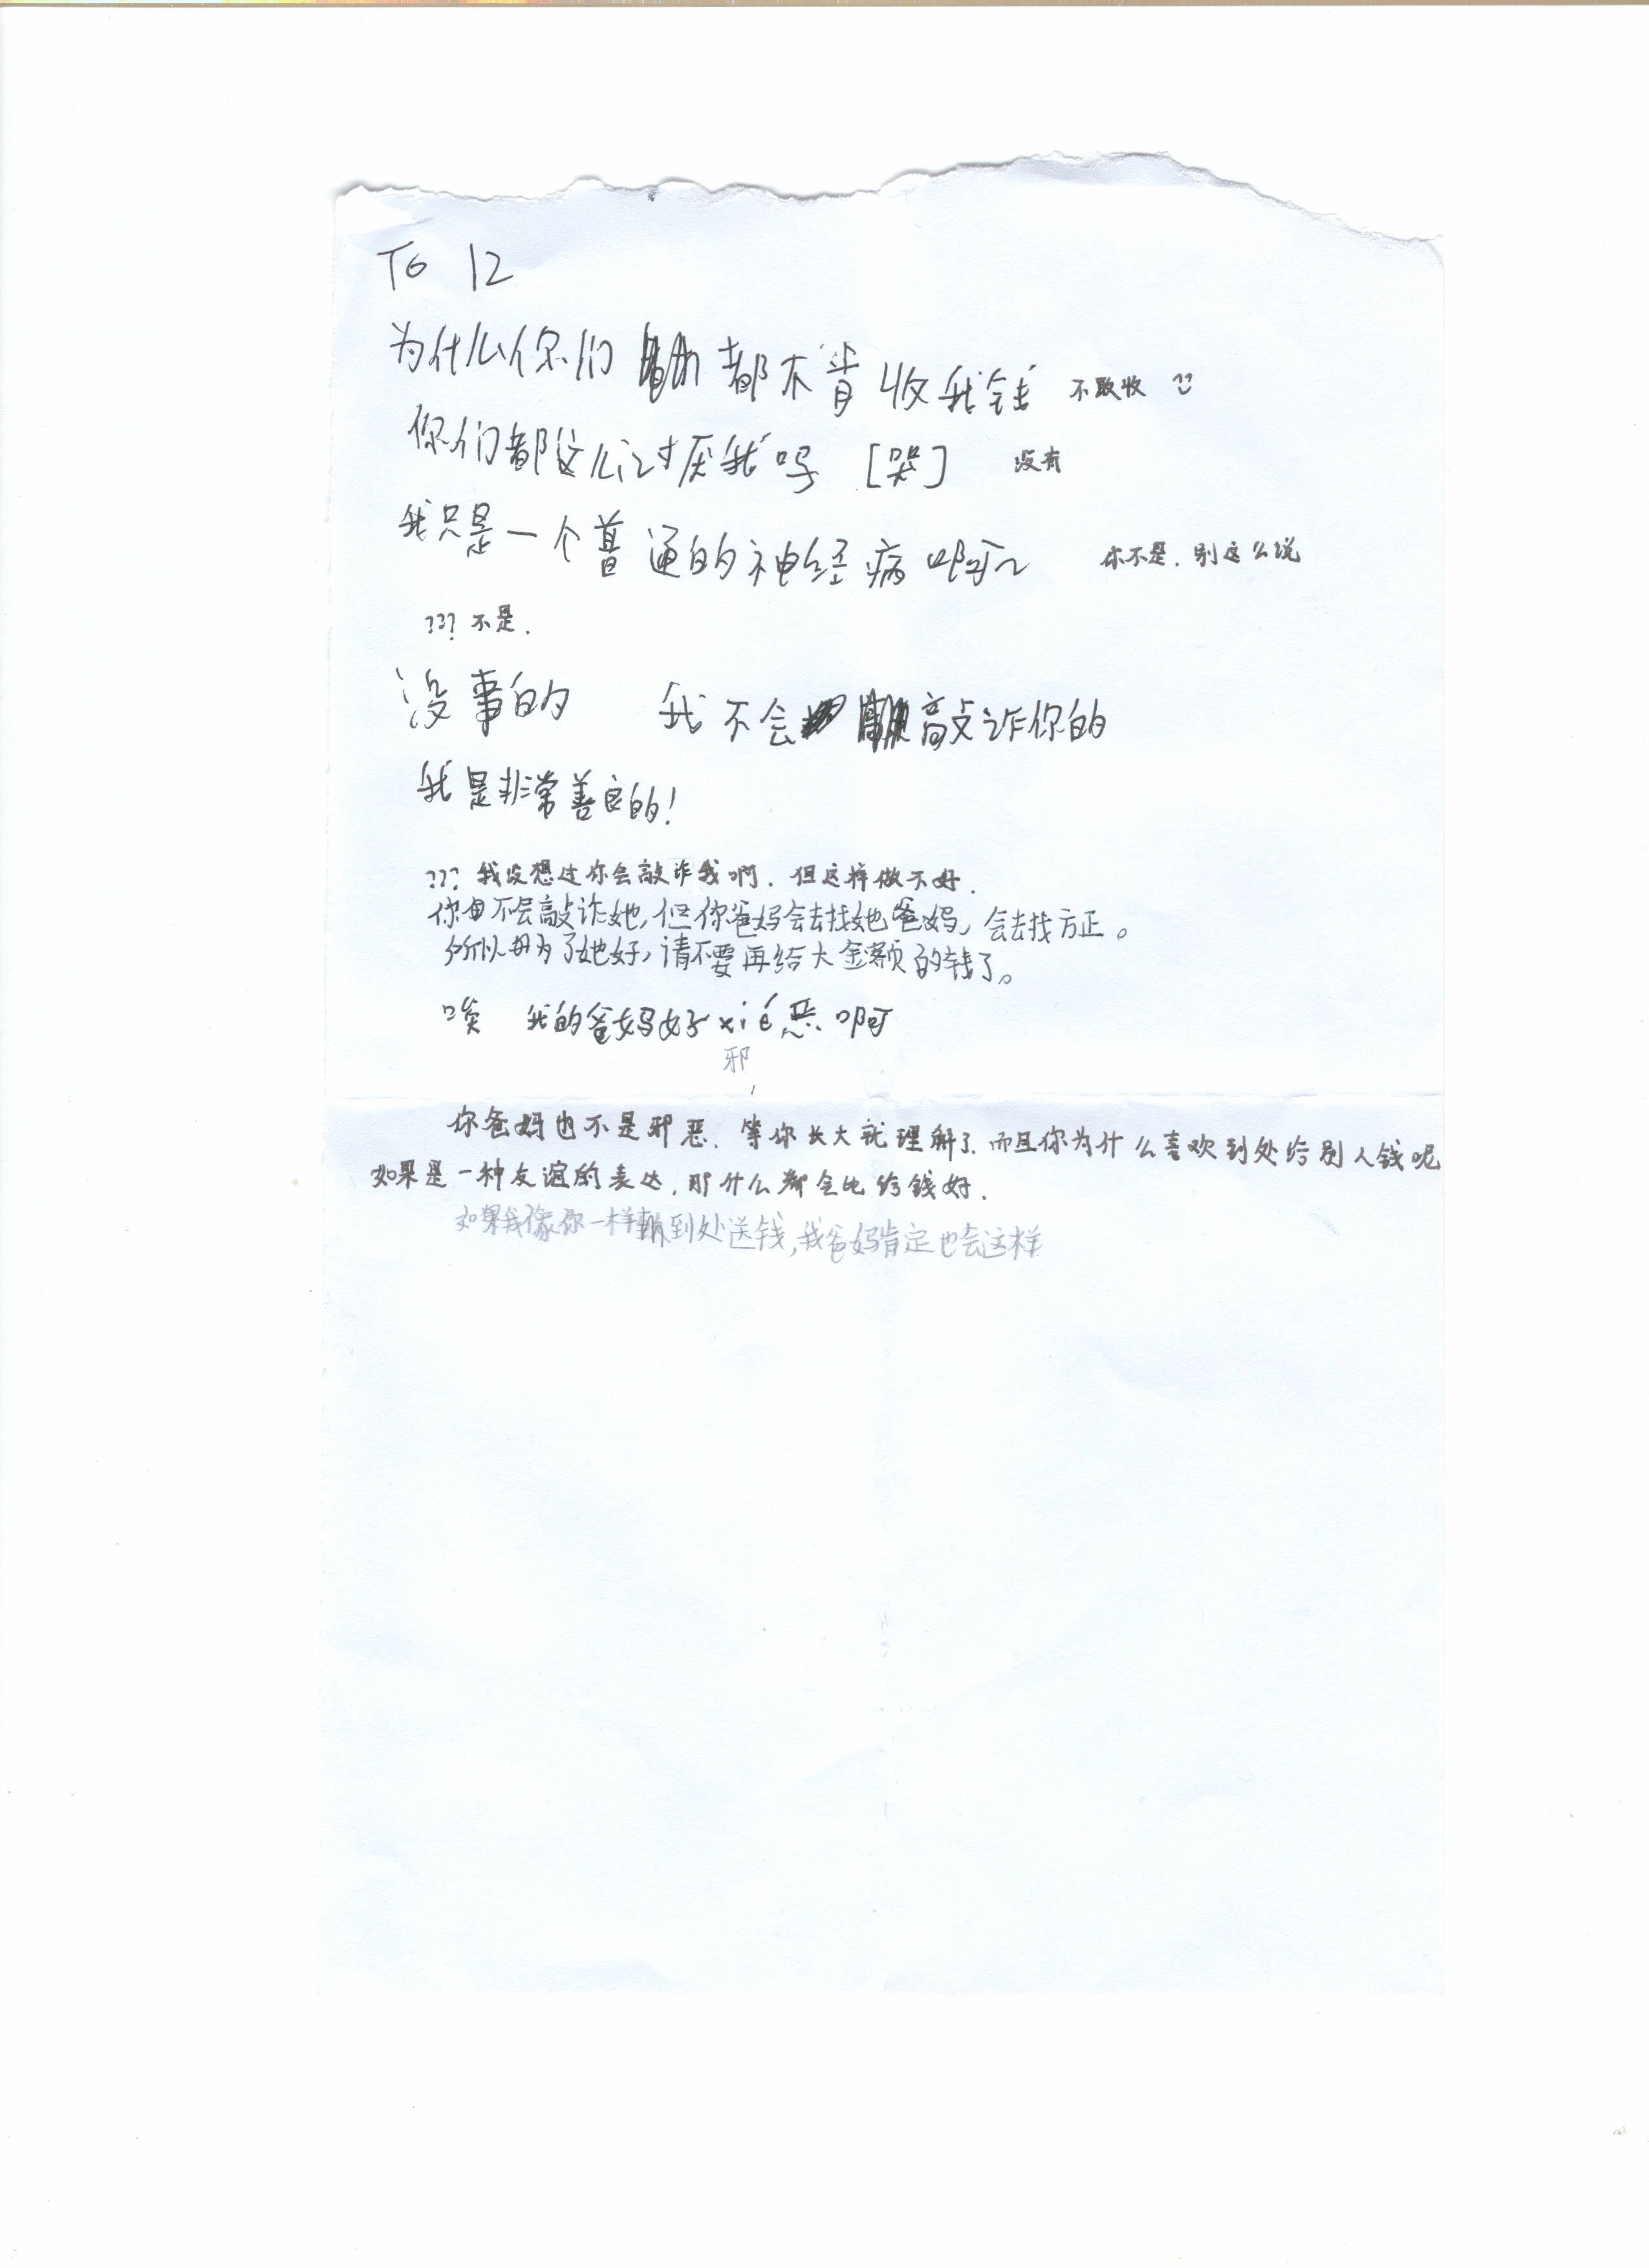 To 12
为什么你们都不肯收我钱 不敢收
你们都这么讨厌我吗 [哭] 没有
我只是一个普通的神经病啊~ 你不是.别这么说
??? 不是.
没事的 我不会敲诈你的
我是非常善良的!
??? 我没想过你会敲诈我啊.但这样做不好.
你不会敲诈她,但你爸妈会去找她爸妈,会去找方正。
所以为了她好,请不要再给大金额的钱了。
唉 我的爸妈好xié恶啊
邪
你爸妈也不是邪恶.等你长大就理解了.而且你为什么喜欢到处给别人钱呢
如果是一种友谊的表达,那什么都会比给钱好.
如果我像你一样到处送钱,我爸妈肯定也会这样